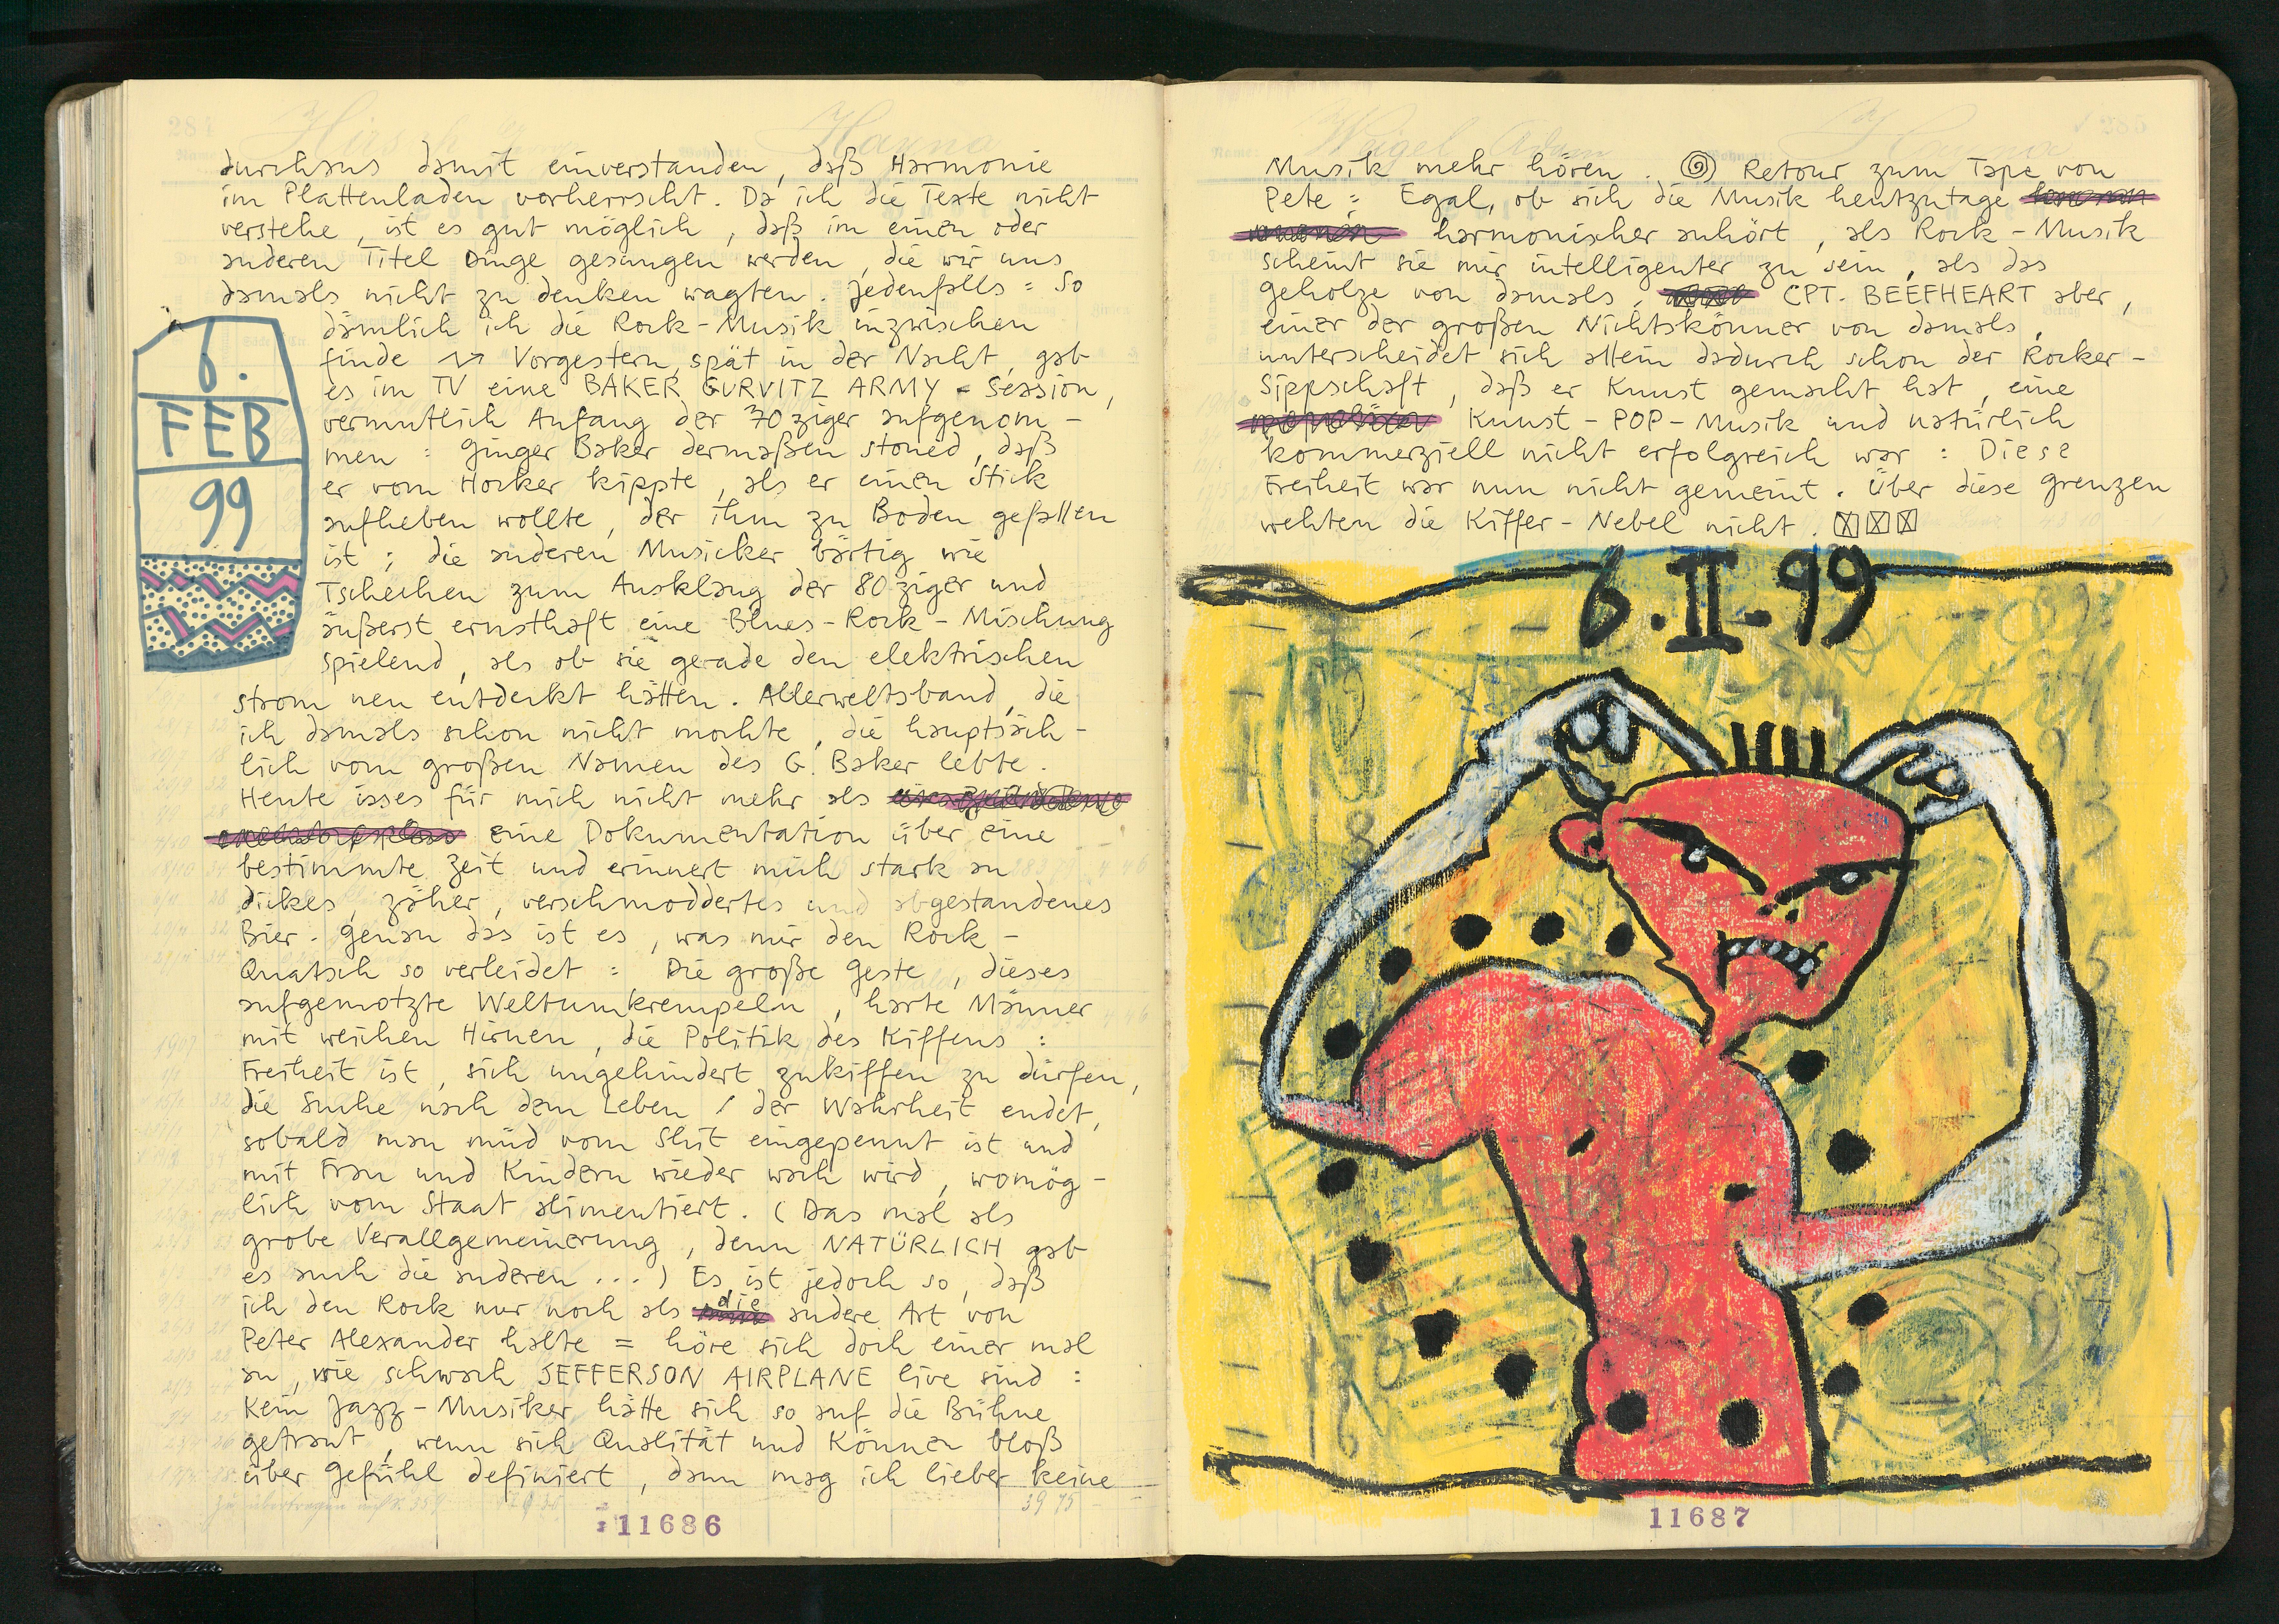 durchaus damit einverstanden, daß Harmonie
im Plattenladen vorherrscht. Da ich die Texte nicht
verstehe, ist es gut möglich, daß im einen oder
anderen Titel Dinge gesungen werden, die wir uns
damals nicht zu denken wagten. Jedenfalls = So
dämlich ich die Rock-Musik inzwischen
finde Vorgestern, spät in der Nacht, gab
es im TV eine BAKER GURVITZ ARMY - Session,
vermutlich Anfang der 70ziger aufgenom-
men : Ginger Baker dermaßen stoned, daß
er vom Hocker kippte, als er einen Stick
aufheben wollte, der ihm zu Boden gefallen
ist ; die anderen Musicker bärtig wie
Tschechen zum Ausklang der 80ziger und
äußerst ernsthaft eine Blues-Rock-Mischung
spielend, als ob sie gerade den elektrischen
Strom neu entdeckt hätten. Allerweltsband, die
ich damals schon nicht mochte, die hauptsäch-
lich vom großen Namen des G. Baker lebte.
Heute isses für mich nicht mehr als
eine Dokumentation über eine
bestimmte Zeit und erinnert mich stark an
dickes, zäher, verschmoddertes und abgestandenes
Bier. Genau das ist es, was mir den Rock-
Quatsch so verleidet : Die große Geste, dieses
aufgemotzte Weltumkrempeln, harte Männer
mit weichen Hirnen, die Politik des Kiffens :
Freiheit ist, sich ungehindert zukiffen zu dürfen,
die Suche nach dem Leben / der Wahrheit endet,
sobald man müd vom Shit eingepennt ist und
mit Frau und Kindern wieder wach wird, womög-
lich vom Staat alimentiert. (Das mal als
grobe Verallgemeinerung, denn NATÜRLICH gab
es auch die anderen ...) Es ist jedoch so, daß
ich den Rock nur noch als die andere Art von
Peter Alexander halte = höre sich doch einer mal
an, wie schwach JEFFERSON AIRPLANE live sind :
Kein Jazz-Musiker hätte sich so auf die Bühne
getraut, wenn sich Qualität und Können bloß
über Gefühl definiert, dann mag ich lieber keine
6.
FEB
99
11686
Musik mehr hören. Retour zum Tape von
Pete : Egal, ob sich die Musik heutzutage
harmonischer anhört, als Rock-Musik
scheint sie mir intelligenter zu sein, als das
Geholze von damals. CPT. BEEFHEART aber,
einer der großen Nichtskönner von damals,
unterscheidet sich allein dadurch schon der Rocker-
Sippschaft, daß er Kunst gemacht hat, eine
Kunst-POP-Musik und natürlich
kommerziell nicht erfolgreich war : Diese
Freiheit war nun nicht gemeint. Über diese Grenzen
wehten die Kiffer-Nebel nicht.
6.II.99
11687